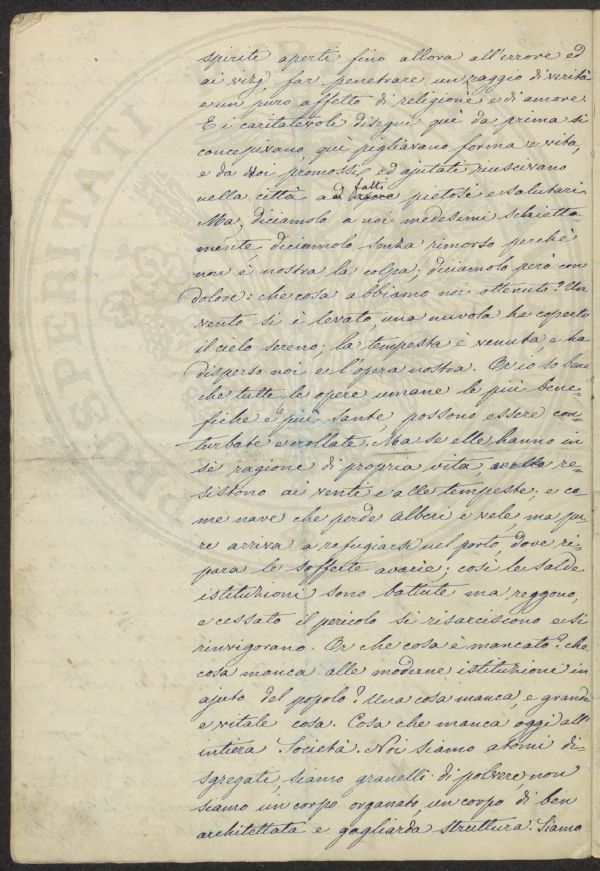 spiriti aperti fino allora all'errore ed
ai vizj, far penetrare un raggio di verità
e un puro affetto di religione e di amore.
E i caritatevoli disegni qui da prima si
concepivano, qui pigliavano forma e vita,
e da voi promossi, ed ajutati riuscivano
fatti
nella città ad pietosi e salutari.
Ma, diciamolo a noi medesimi schietta-
mente, diciamolo senza rimorso perchè
non è nostra la colpa; diciamolo però con
dolore: che cosa abbiamo noi ottenuto? Un
vento si è levato, una nuvola ha coperto
il cielo sereno; la tempesta è venuta, e ha
disperso noi e l'opera nostra. Or io so bene
che tutte le opere umane le più bene-
fiche e più sante, possono essere con-
turbate e crollate. Ma se elle hanno in
sè ragione di propria vita re-
sistono ai venti e alle tempeste; e co-
me nave che perde alberi e vele, ma pu-
re arriva a refugiarsi nel porto, dove ri-
para le sofferte avarie; così le salde
istituzioni sono battute ma reggono,
e cessato il pericolo si risarciscono e si
rinvigorano. Or che cosa è mancato? che
cosa manca alle moderne istituzioni in
ajuto del popolo? Una cosa manca, e grande
e vitale cosa. Cosa che manca oggi all'
intiera Società. Noi siamo atomi di-
sgregati, siamo granelli di polvere, non
siamo un corpo organato, un corpo di ben
architettata e gagliarda struttura. Siamo
PERITATI